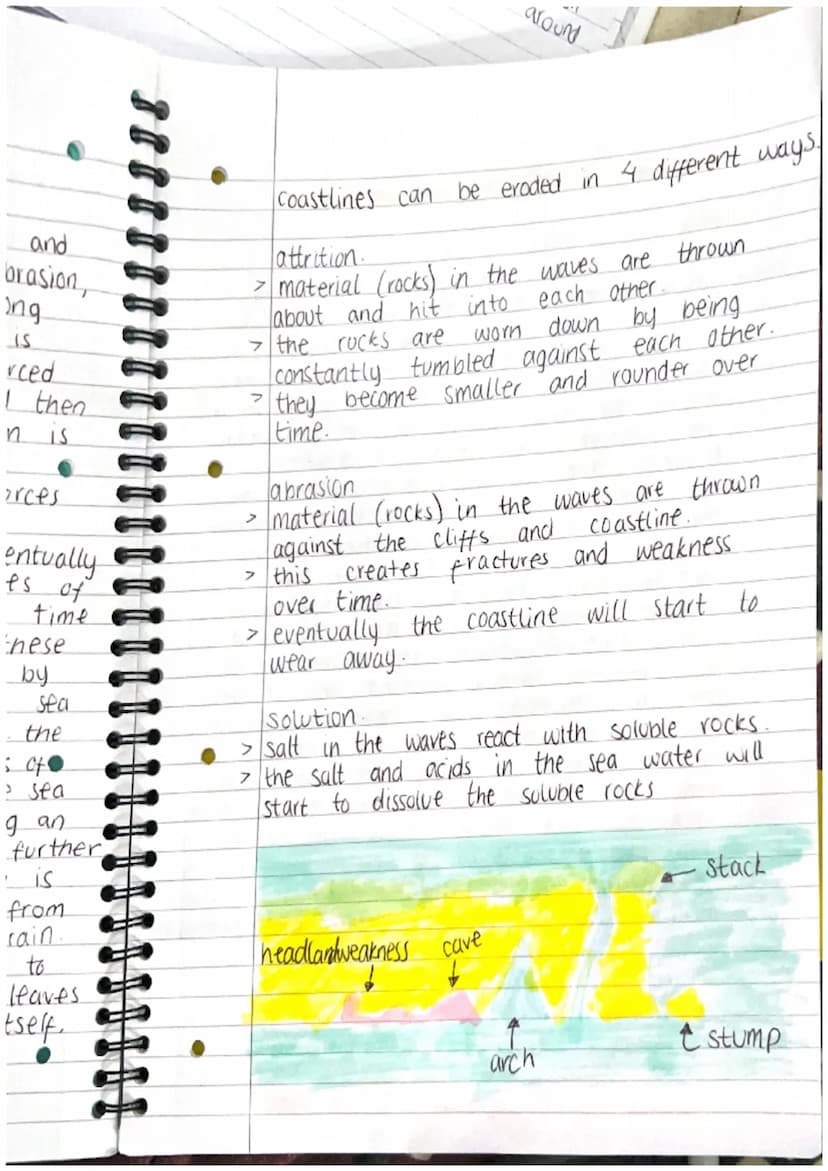 around
and
brasion,
ong
is
rced
then
n is
orces
entually
es of
time
these
by
sea
the
of
sea
g an
further
is
from
rain.
to
leaves
tself.
coastlines can be eroded in 4 different ways.
attrition.
> material (rocks) in the waves are thrown
about and hit into each other.
> the rocks are worn down by being
constantly tumbled against each other.
> they become smaller and rounder over
time.
abrasion
> material (rocks) in the waves are thrown
against the cliffs and coastline.
> this creates fractures and weakness
over time.
> eventually the coastline will start to
wear away.
solution.
> salt in the waves react with soluble rocks.
> the salt and acids in the sea water will
start to dissolve the soluble rocks
stack
headland weakness cave
arch
stump